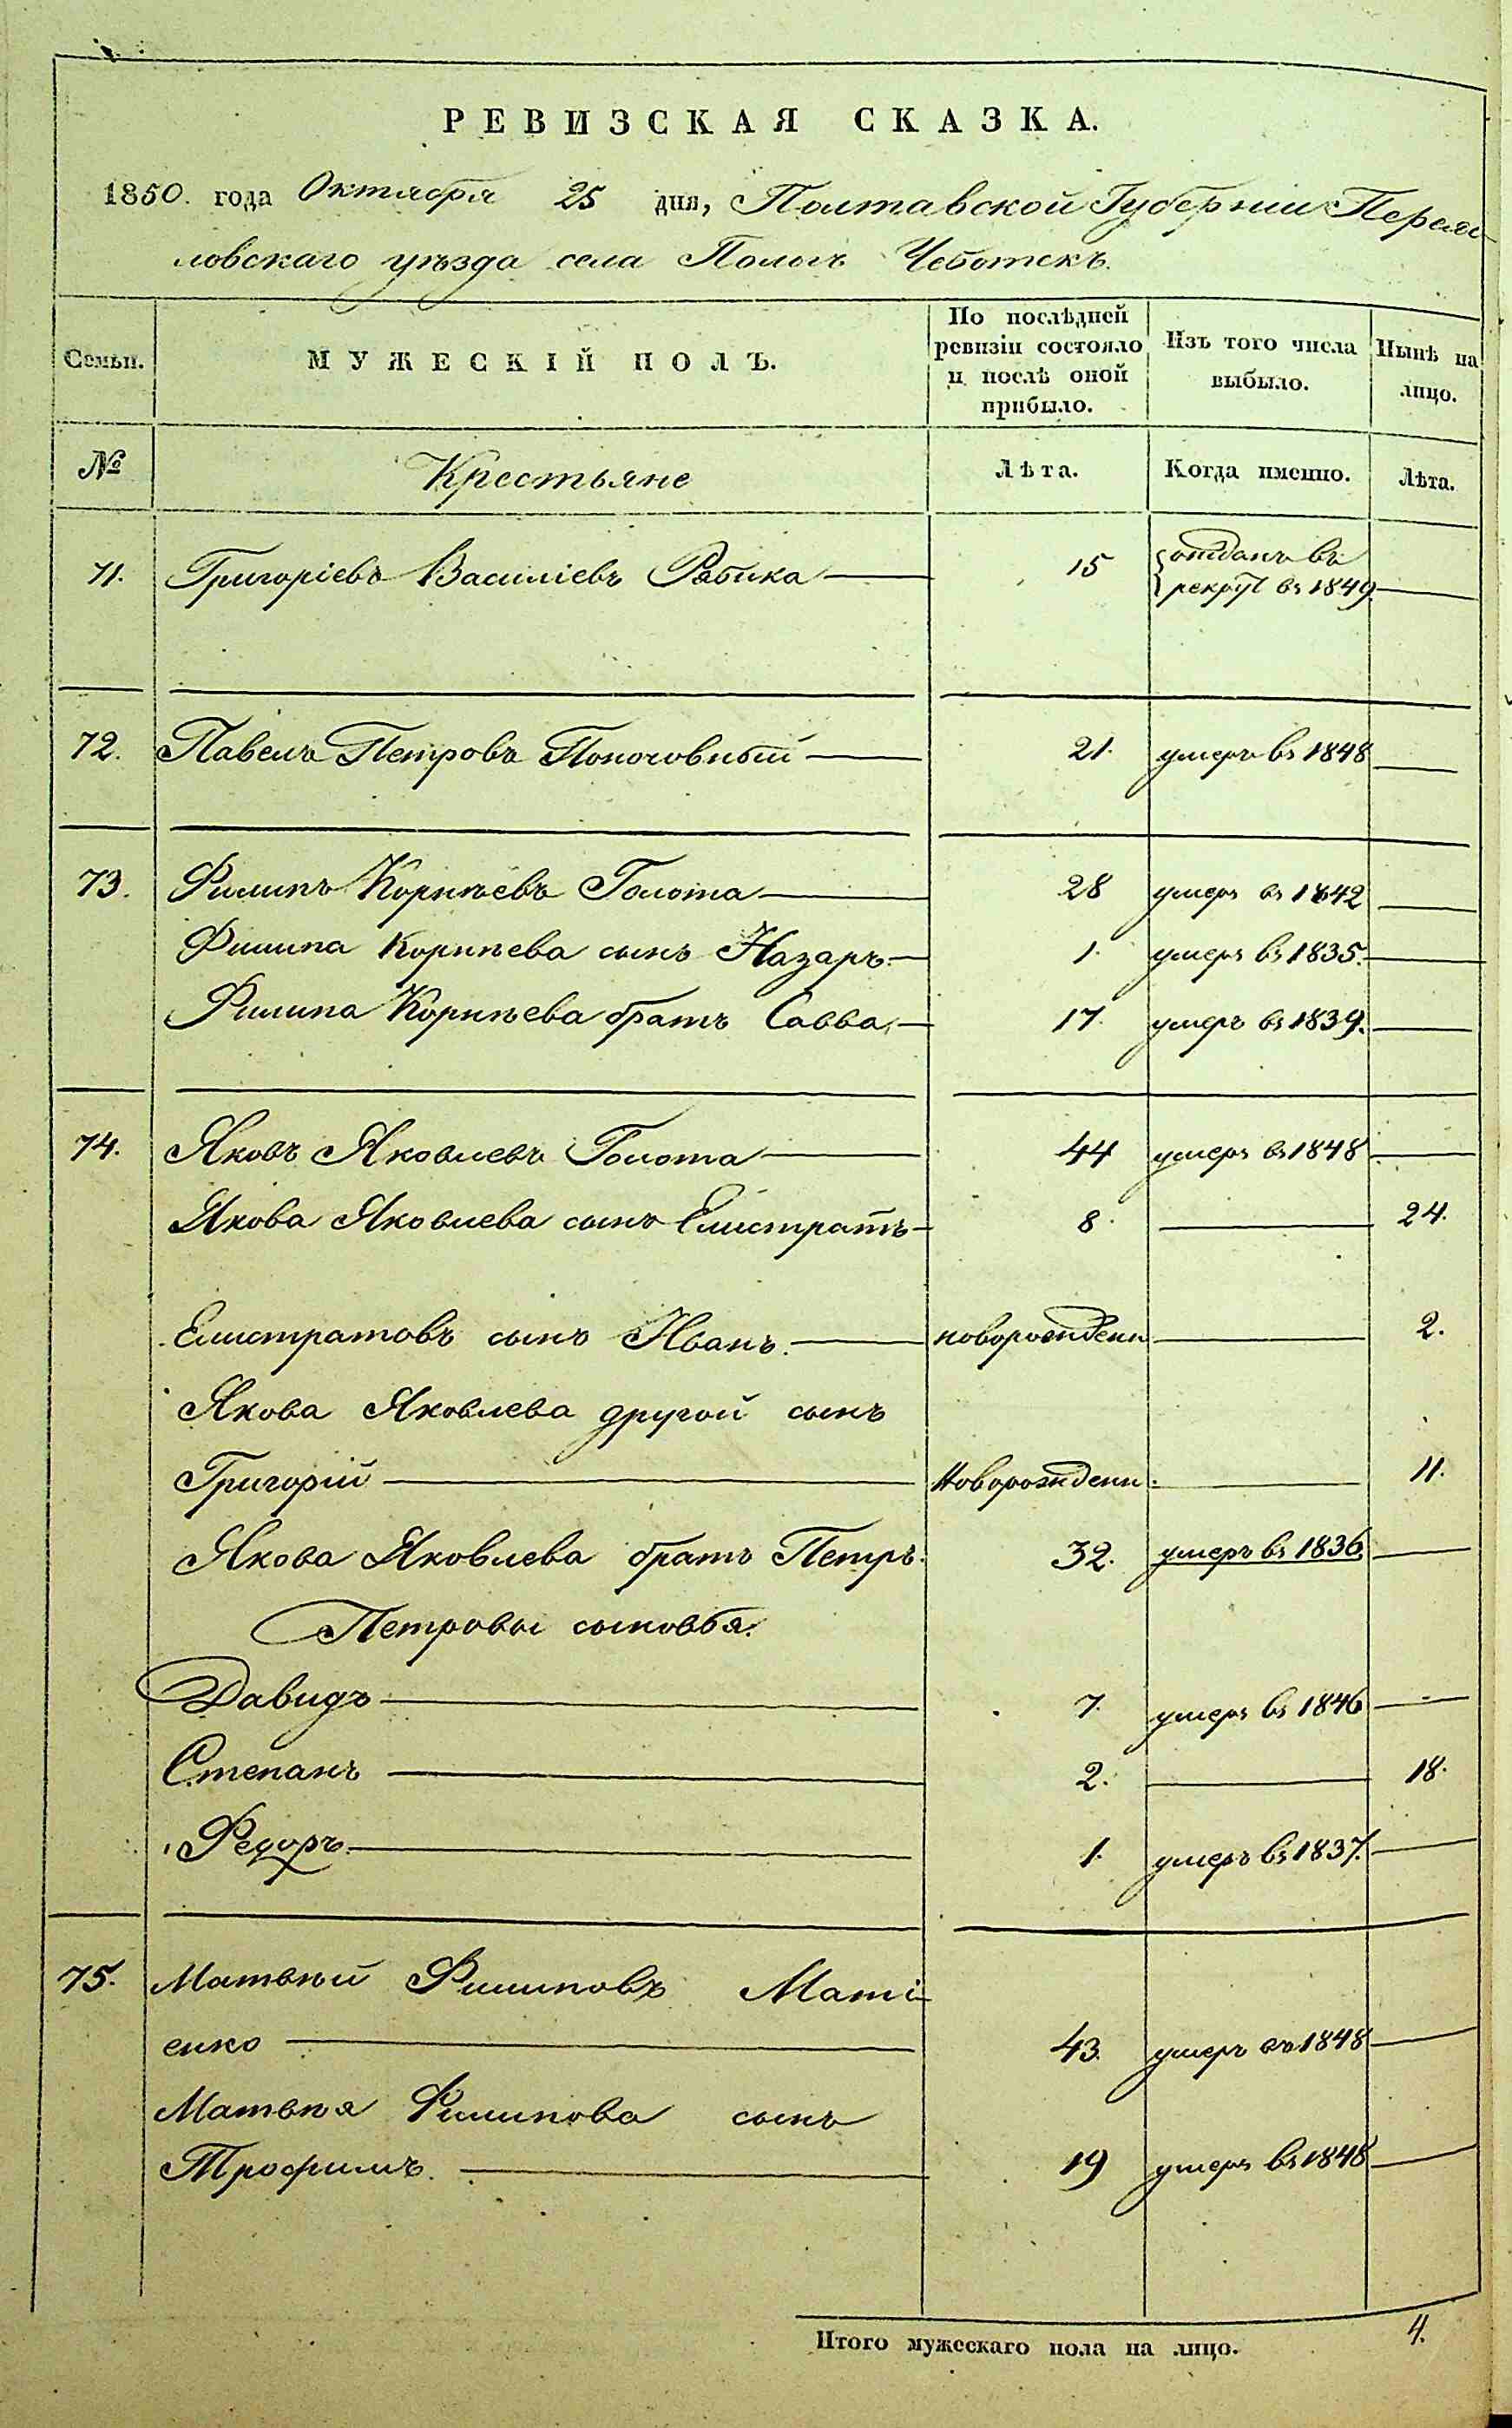 РЕВИЗСКАЯ СКАЗКА.
1850. года Октября 25 дня, Полтавской Губерніи Переяс
ловскаго уѣзда села Пологъ Чеботекъ.
Семьи.
МУЖЕСКІЙ ПОЛЪ.
По послѣдней
ревизіи состояло
и послѣ оной
прибыло.
Изъ того числа
выбыло.
Нынѣ на
лицо.
№ Крестьяне Лѣта. Когда именно. Лѣта.
71. Григоріевъ Василіевъ Рябика 15 отданъ въ
рекрут въ 1849
72. Павелъ Петровъ 21. умеръ въ 1848
73. Филипъ Корнѣевъ Голота 28 умеръ въ 1842
Филипа Корнѣева сынъ Назаръ. 1. умеръ въ 1835.
Филипа Корнѣева братъ Савва 17. умеръ въ 1839.
74. Яковъ Яковлевъ Голота 44 умеръ въ 1848
Якова Яковлева сынъ Елистратъ 8. 24.
Елистратовъ сынъ Иванъ. новорожденн 2.
Якова Яковлева другой сынъ
Григорій Новорожденн. 11.
Якова Яковлева братъ Петръ. 32. умеръ въ 1836
Петровы сыновья.
Давидъ 7. умеръ въ 1846
Степанъ 2. 18.
Федоръ. 1. умеръ въ 1837.
75. Матвѣй Филиповъ Маті
енко 43. умеръ въ 1848
Матвѣя Филипова сынъ
Трофимъ. 19 умеръ въ 1848
Итого мужескаго пола на лицо. 4.